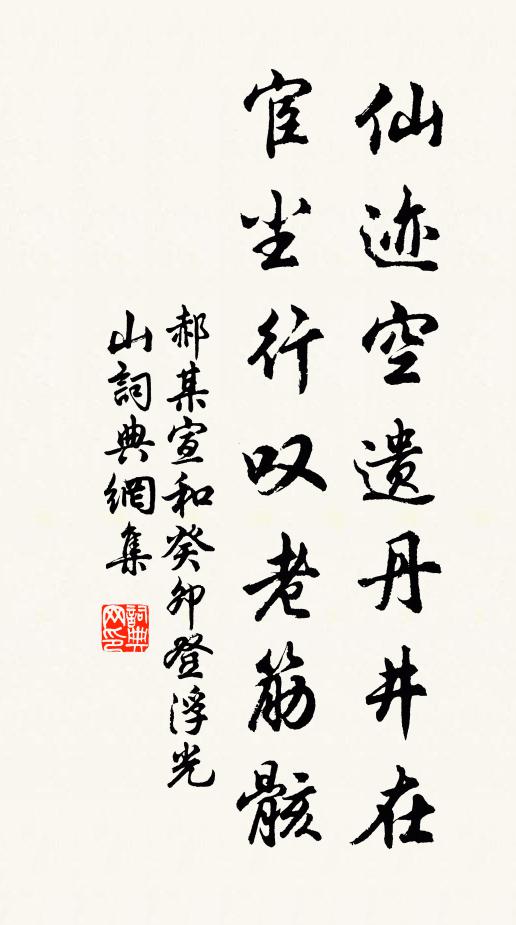 仙迹空遗丹井在
宦尘行叹老筋骸
郝某宣和癸卯登浮光
山詞典網集
詞典网印